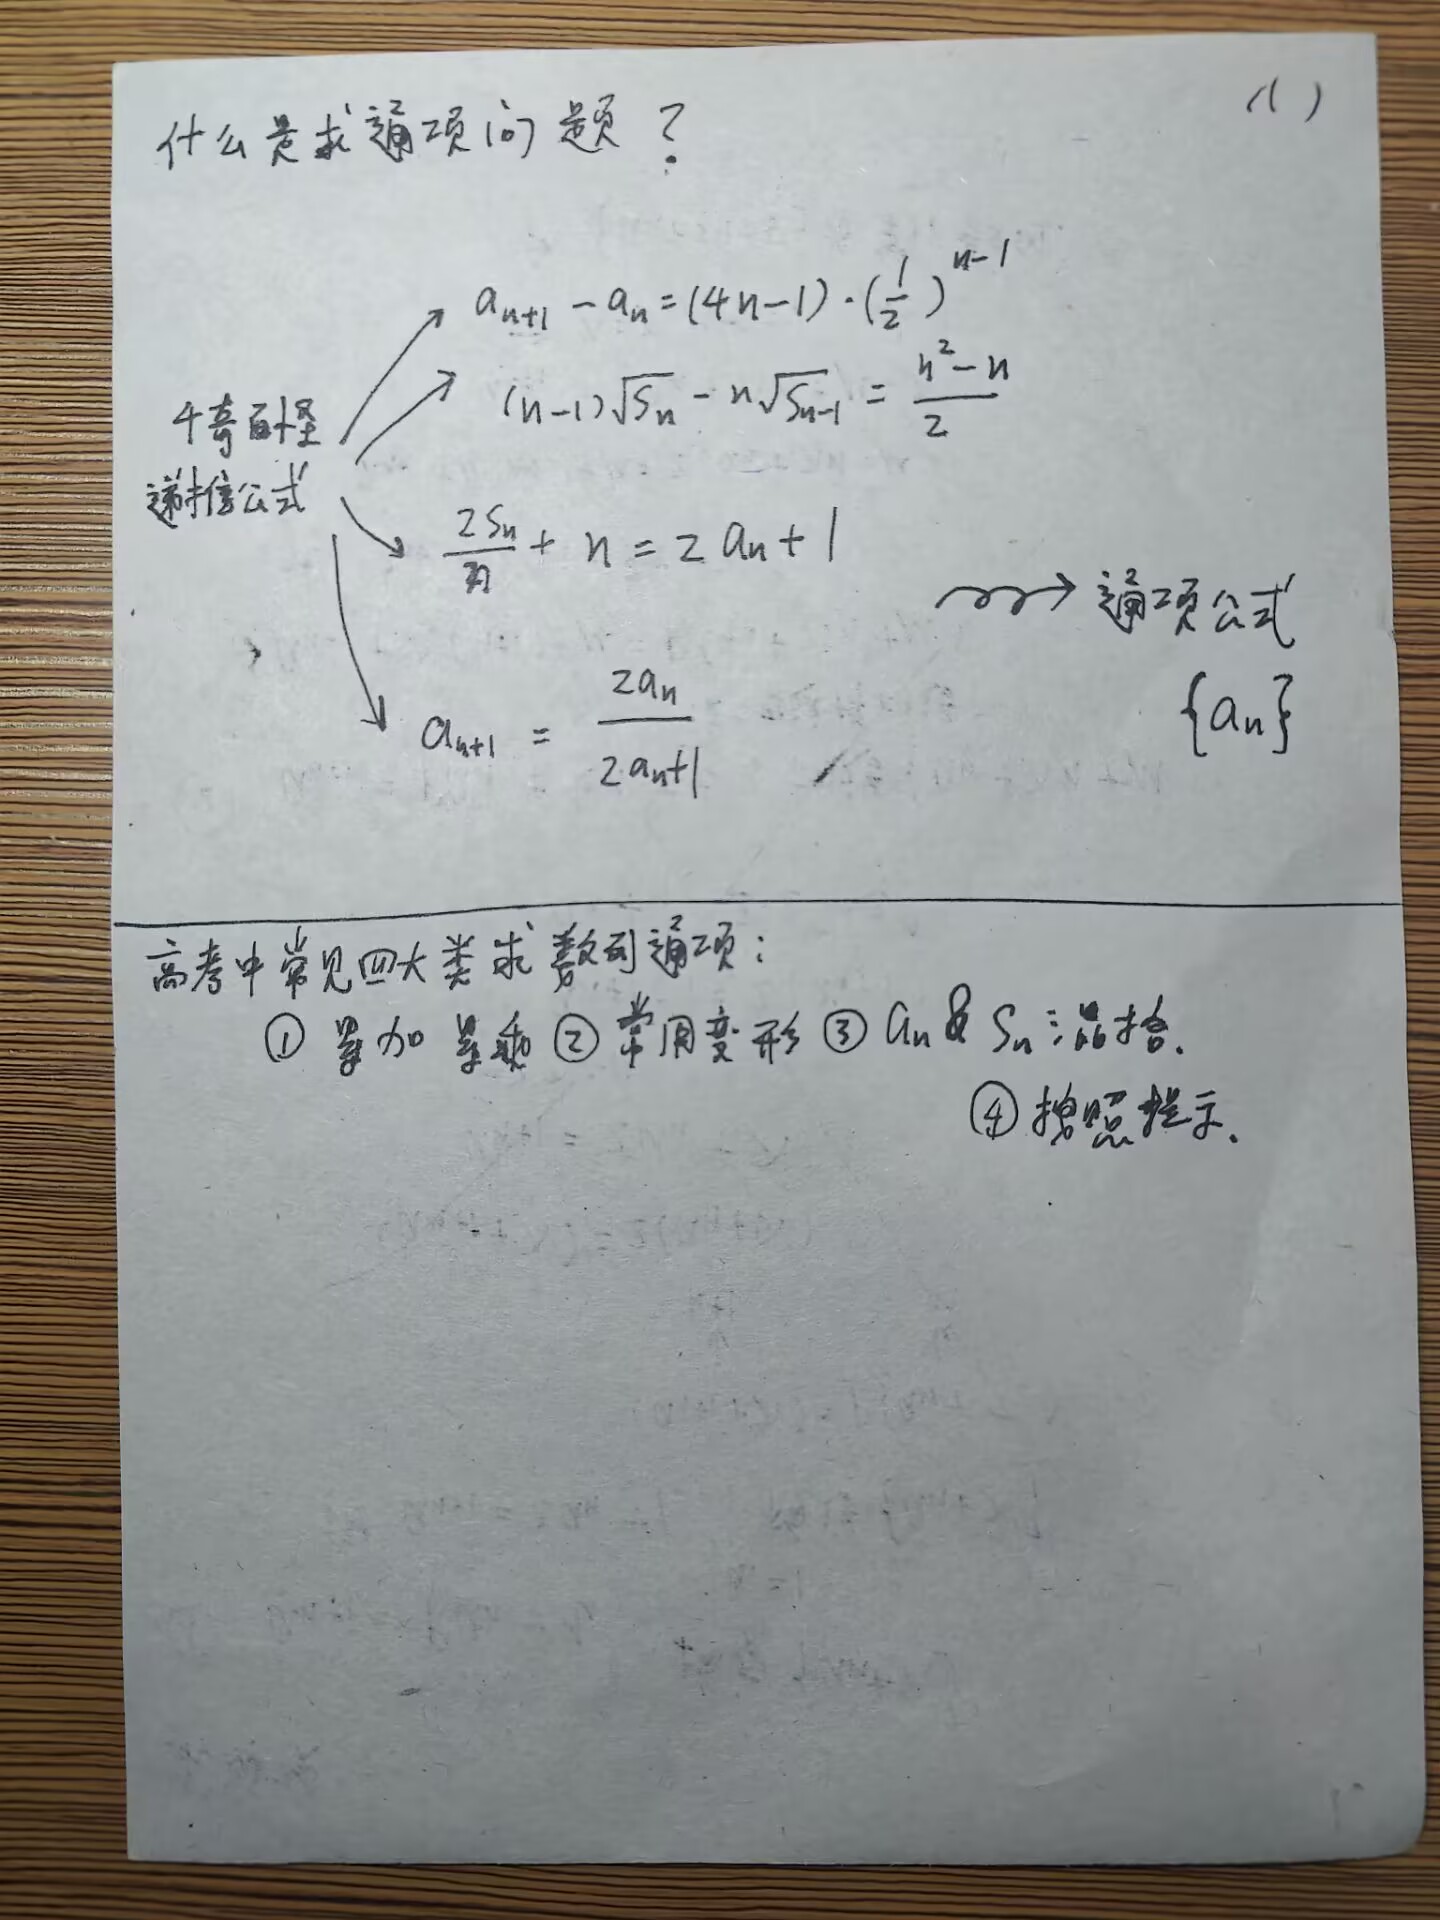 (1)
什么是求通项问题？
a_{n+1} - a_n = (4n-1)·(1/2)^{n-1}
(n-1)√S_n - n√S_{n-1} = (n²-n)/2
千奇百怪
递推公式
2S_n/n + n = 2a_n + 1
通项公式
{a_n}
a_{n+1} = 2a_n/(2a_n+1)
高考中常见四大类求数列通项：
① 累加累乘 ② 常用变形 ③ a_n & S_n 混搭.
④ 按照提示.